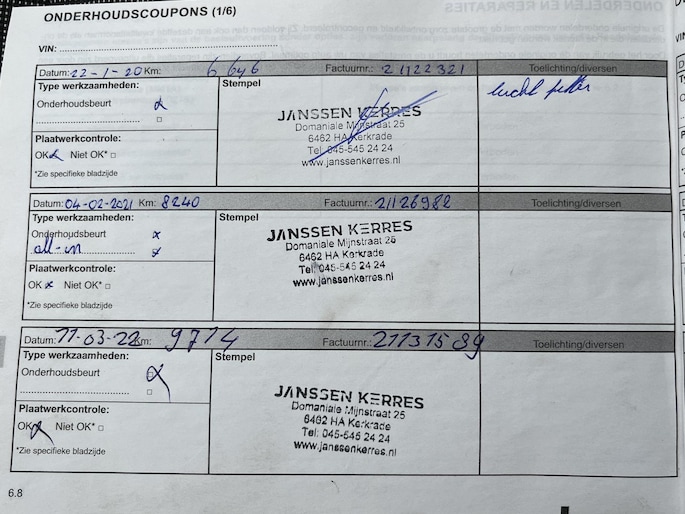 ONDERHOUDSCOUPONS (1/6)
VIN:
Datum: 22-1-20 Km: 6646 Factuurnr.: 21122321 Toelichting/diversen
Type werkzaamheden: Stempel lucht filter
Onderhoudsbeurt
JANSSEN KERRES
Domaniale Mijnstraat 25
6462 HA Kerkrade
Tel: 045-545 24 24
www.janssenkerres.nl
Plaatwerkcontrole:
OK Niet OK*
*Zie specifieke bladzijde
Datum: 04-02-2021 Km: 8240 Factuurnr.: 21126982 Toelichting/diversen
Type werkzaamheden: Stempel
Onderhoudsbeurt x
all-in x
JANSSEN KERRES
Domaniale Mijnstraat 25
6462 HA Kerkrade
Tel: 045-545 24 24
www.janssenkerres.nl
Plaatwerkcontrole:
OK x Niet OK*
*Zie specifieke bladzijde
Datum: 11-03-22 Km: 9714 Factuurnr.: 21131589 Toelichting/diversen
Type werkzaamheden: Stempel
Onderhoudsbeurt
JANSSEN KERRES
Domaniale Mijnstraat 25
6462 HA Kerkrade
Tel: 045-545 24 24
www.janssenkerres.nl
Plaatwerkcontrole:
OK Niet OK*
*Zie specifieke bladzijde
6.8